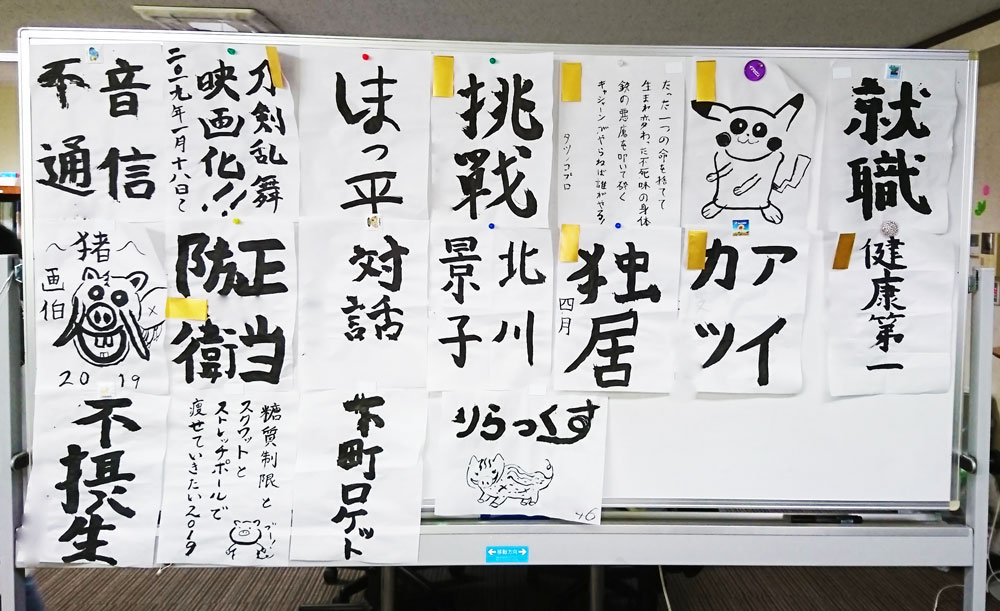 音信
不通
刀剣乱舞
映画化!!
二〇一九年一月十八日〜
ほっ平
挑戦
たった一つの命を捨てて
生まれ変わった不死味の身体
鉄の悪魔を叩いて砕く
キャシャーンがやらねば誰がやる!
タツノコプロ
就職
〜猪〜
画伯
2019
正当
防衛
対話
北川
景子
独居
四月
アイ
カツ
健康第一
不摂生
糖質制限と
スクワットと
ストレッチポールで
痩せていきたい2019
下町ロケット
りらっくす
移動方向